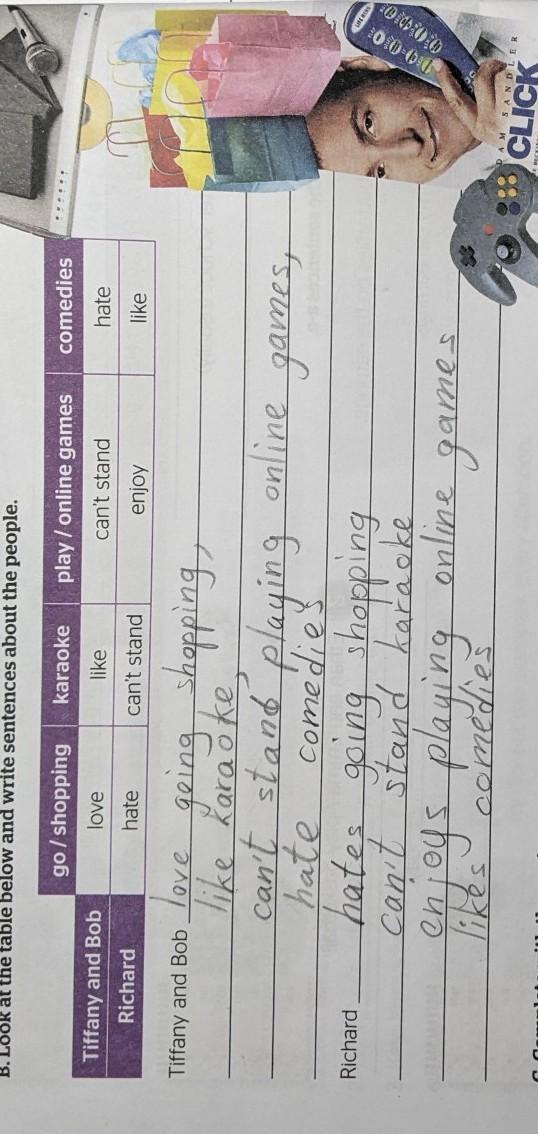 B. Look at the table below and write sentences about the people.
go / shopping karaoke play / online games comedies
Tiffany and Bob love like can't stand hate
Richard hate can't stand enjoy like
Tiffany and Bob love going shopping,
like karaoke,
can't stand playing online games,
hate comedies
Richard hates going shopping
can't stand karaoke
enjoys playing online games
likes comedies
CLICK